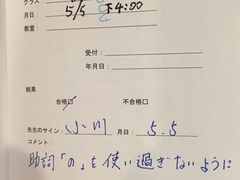 クラス：
月日： 5/5 下4:00
教室：
受付：
年月日：
結果
合格口 不合格口
先生のサイン： 小川 月日： 5.5
コメント：
助詞「の」を使い過ぎないように